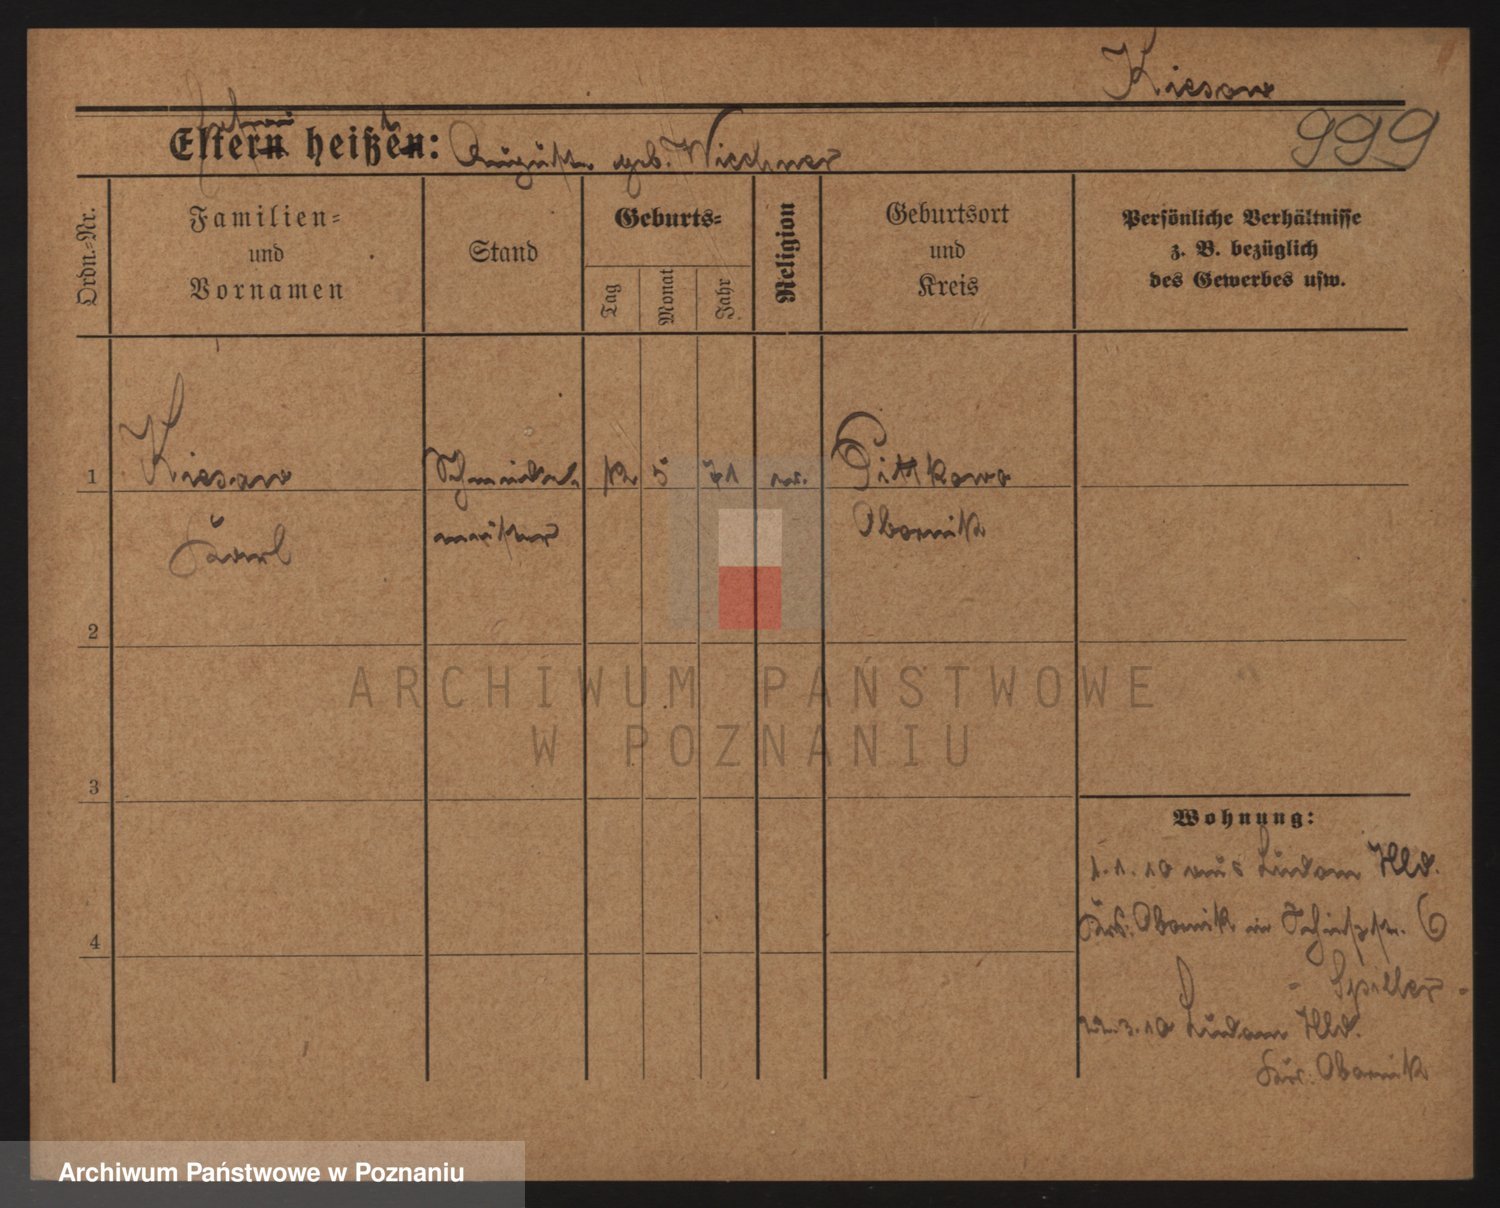 Kiesow
999
Eltern heißen: Auguste geb. Wiechner
Ordn.=Nr.
Familien=
und
Vornamen
Stand
Geburts=
Tag
Monat
Jahr
Religion
Geburtsort
und
Kreis
Persönliche Verhältnisse
z. B. bezüglich
des Gewerbes usw.
1
Kiesow
Karl
Schneider
meister
12
5
71
ev.
Obornik
2
3
4
Wohnung:
1.1.10 aus Ludom Hld.
Krs. Obornik in 6
- Spiller -
22.3.10 Ludom Hld.
Krs. Obornik
ARCHIWUM PAŃSTWOWE
W POZNANIU
Archiwum Państwowe w Poznaniu